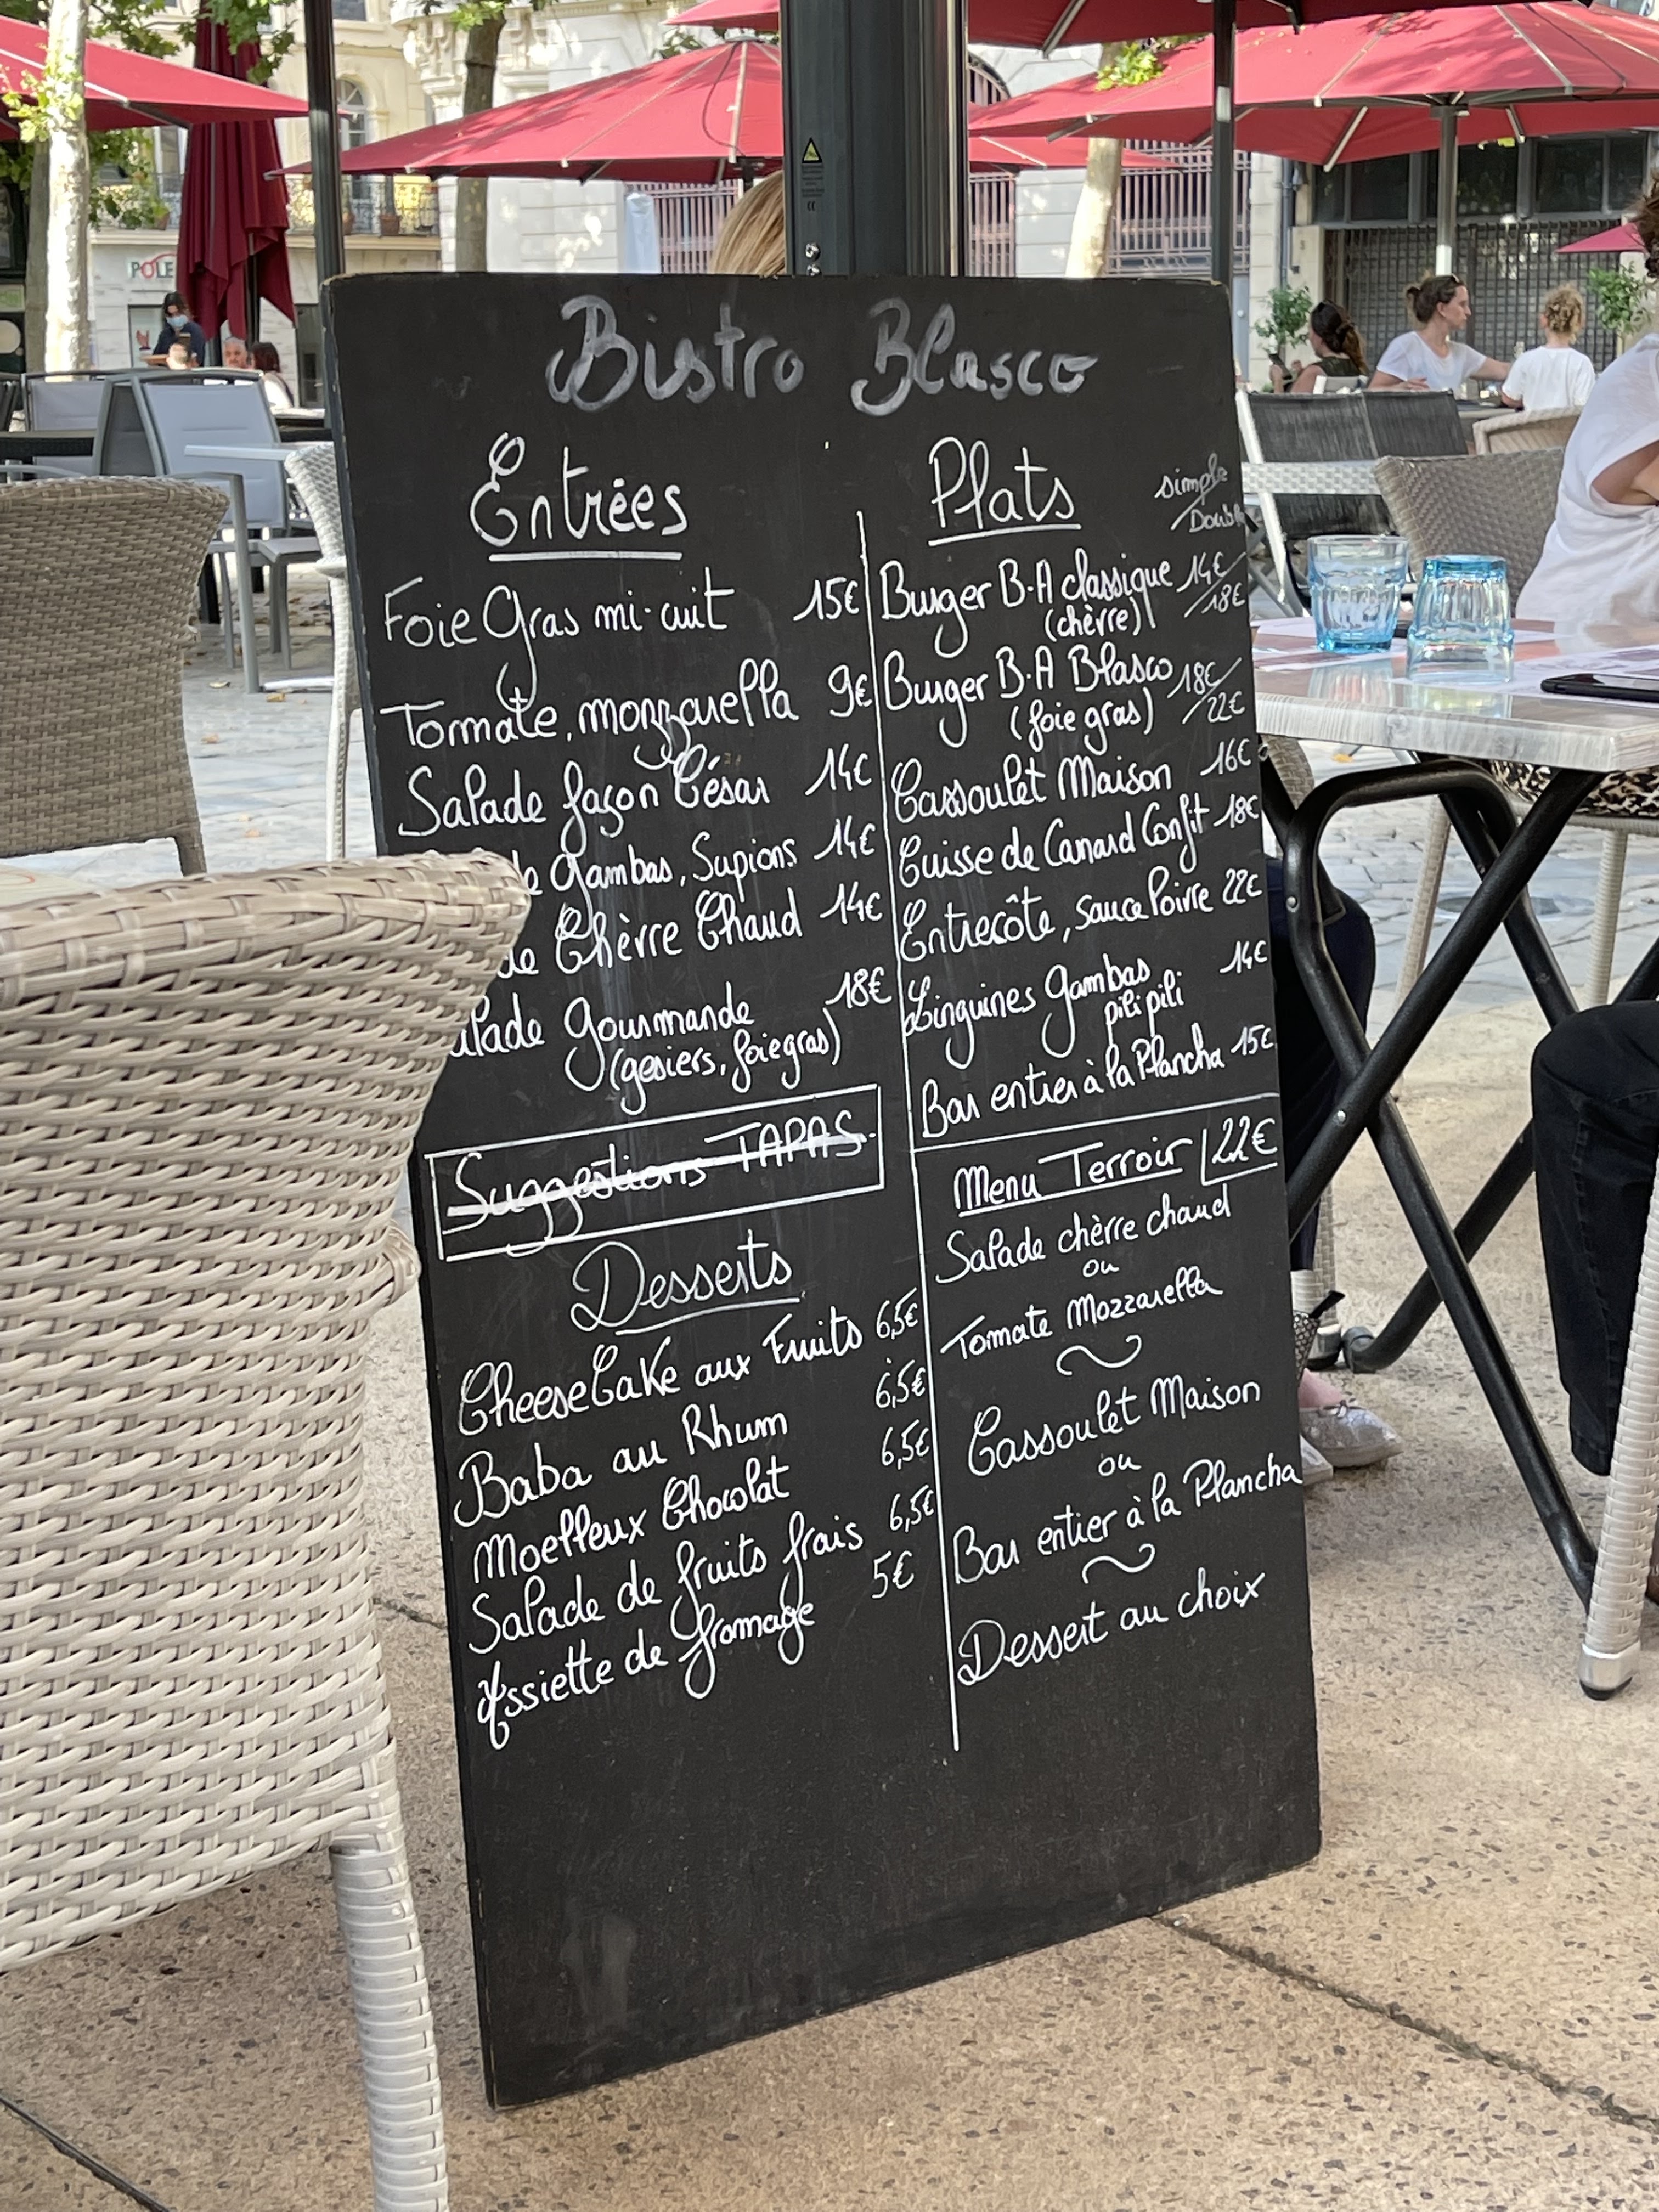 POLE
Bistro Blasco
Entrées
Foie Gras mi-cuit 15€
Tomate, mozzarella 9€
Salade façon César 14€
Gambas, Supions 14€
de Chèvre Chaud 14€
alade Gourmande 18€
(gesiers, foie gras)
Suggestions TAPAS
Desserts
CheeseCake aux Fruits 6,5€
Baba au Rhum 6,5€
Moelleux Chocolat 6,5€
Salade de fruits frais 6,5€
Assiette de fromage 5€
Plats
simple
Double
Burger B.A classique 14€/18€
(chèvre)
Burger B.A Blasco 18€/22€
(foie gras)
Cassoulet Maison 16€
Cuisse de Canard Confit 18€
Entrecôte, sauce Poivre 22€
Linguines gambas 14€
pili pili
Bar entier à la Plancha 15€
Menu Terroir 22€
Salade chèvre chaud
ou
Tomate Mozzarella
Cassoulet Maison
ou
Bar entier à la Plancha
Dessert au choix